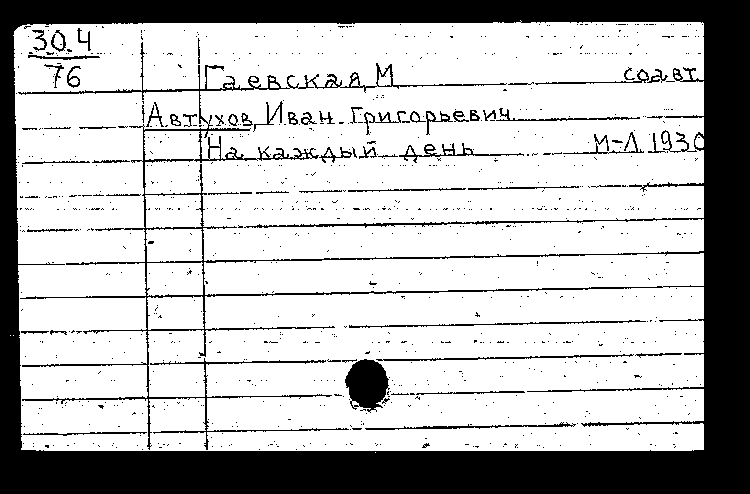 30.4
76
Гаевская, М соавт
Автухов, Иван Григорьевич
На каждый день М-Л 1930